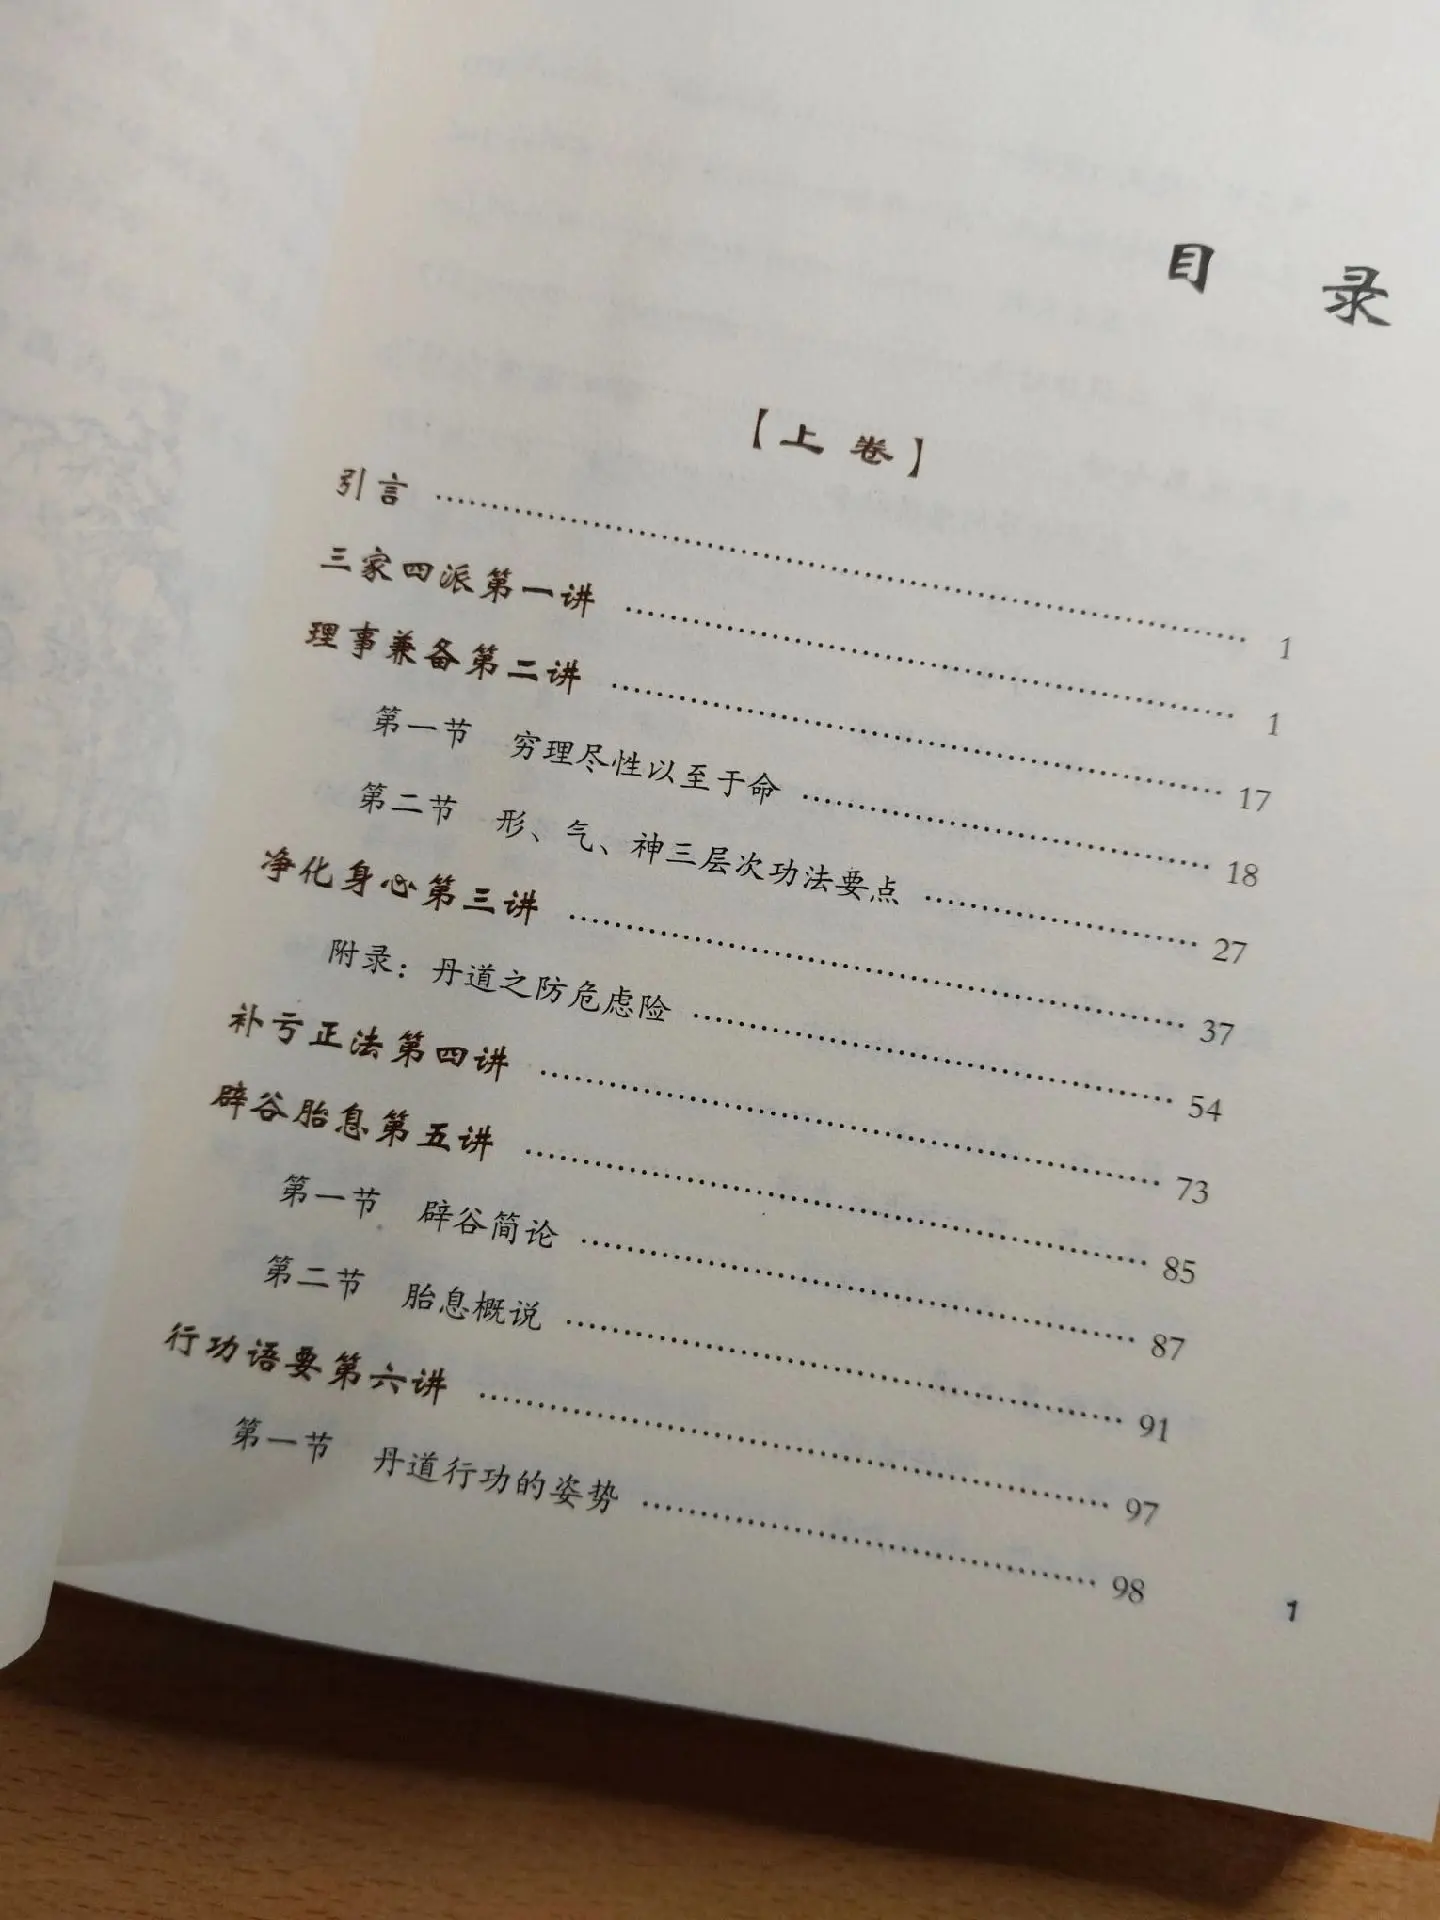 目 录
【上卷】
引言 …… 1
三家四派第一讲 …… 1
理事兼备第二讲 …… 17
第一节 穷理尽性以至于命 …… 18
第二节 形、气、神三层次功法要点 …… 27
净化身心第三讲 …… 37
附录：丹道之防危虑险 …… 54
补亏正法第四讲 …… 73
辟谷胎息第五讲 …… 85
第一节 辟谷简论 …… 87
第二节 胎息概说 …… 91
行功语要第六讲 …… 97
第一节 丹道行功的姿势 …… 98
1